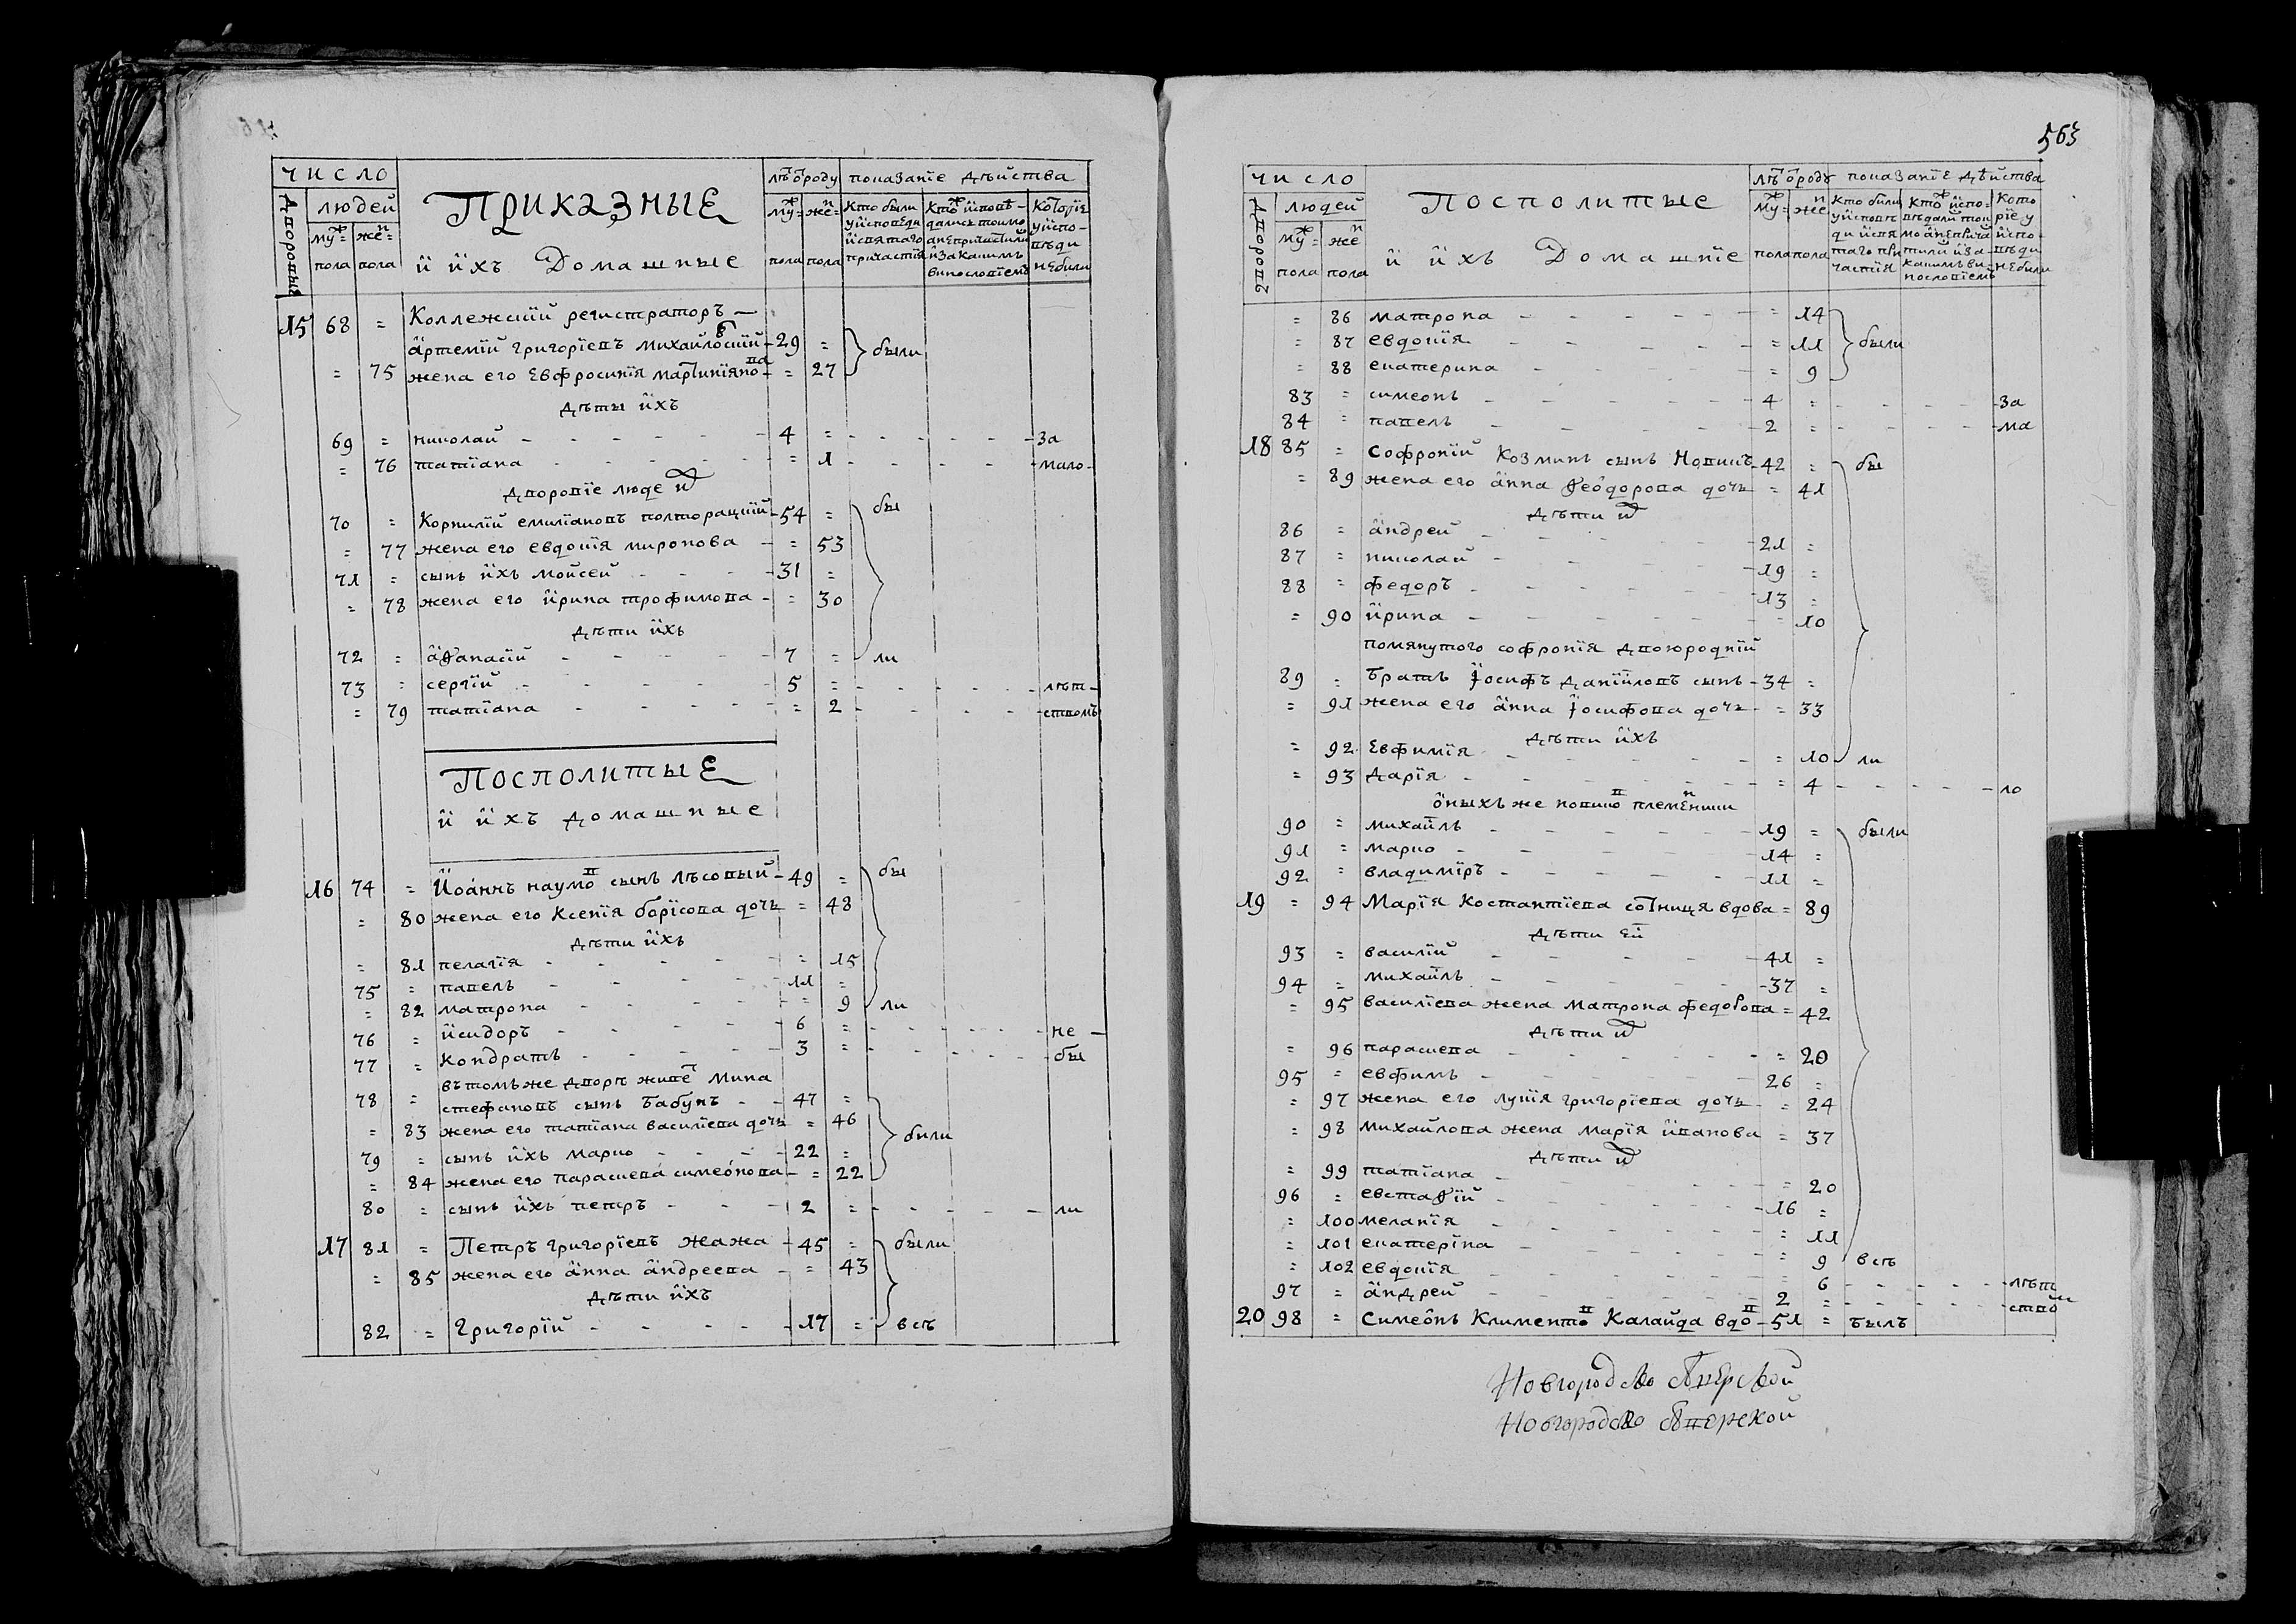 число
Приказные
лѣтъ ѿ роду показанїе дѣйства
Дворовые
людей
муж= жен=
пола пола
и ихъ Домашные
муж= жен=
пола пола
Кто были у исповеди и святаго причастїя
Кто исповѣдались токмо а не причастились и за какимъ винословїемъ
Которїе у исповѣди не были
15 68 = Коллежскїй регистраторъ —
Артемїй григорїевъ михайловскїй - 29 = были
= 75 жена его Евфросинїя мартинїянова - = 27
дѣты ихъ
69 = николай - 4 = - за
= 76 татїана - = 1 - мало-
Дворовїе люде
70 = Корнилїй емилїановъ полторацкїй - 54 = бы
= 77 жена его евдокїя миронова - = 53
71 = сынъ ихъ мойсей - 31 =
= 78 жена его ирина трофимова - = 30
дѣти ихъ
72 = аѳанасїй - 7 = ли
73 = сергїй - 5 = - лѣт-
= 79 татїана - = 2 - ствомъ
Посполитые
и ихъ домашные
16 74 = Іоаннъ наумов сынъ лѣсовый - 49 = бы
= 80 жена его Ксенїя борїсова дочь = 48
дѣти ихъ
= 81 пелагїя - = 15
75 = павелъ - 11 =
= 82 матрона - = 9 ли
76 = исидоръ - 6 = - не -
77 = Кондратъ - 3 = - бы
въ томъ же дворѣ живет Мина
78 = стефановъ сынъ бабунъ - 47 =
= 83 жена его татїана василїева дочь = 46 были
79 = сынъ ихъ марко - 22 =
= 84 жена его параскева симеонова - = 22
80 = сынъ ихъ петръ - 2 = - ли
17 81 = Петръ григорїевъ жажа - 45 = были
= 85 жена его анна андреева - = 43
дѣти ихъ
82 = Григорїй - 17 = всѣ
563
число
Посполитые
лѣтъ ѿ роду показанїе дѣйства
Дворове
людей
муж= жен
пола пола
и ихъ Домашнїе
муж= жен
пола пола
Кто были у исповѣди и святаго причастїя
Кто исповѣдали токмо а не причастили и за какимъ винословїемъ
Которїе у исповѣди не были
= 86 матрона - = 14
= 87 евдокїя - = 11 были
= 88 екатерина - = 9
83 = симеонъ - 4 = - за
84 = павелъ - 2 = - ма
18 85 = Софронїй козминъ сынъ Новикъ - 42 = бы
= 89 жена его анна ѳеодорова дочь = 41
дѣти их
86 = андрей - 21 =
87 = николай - 19 =
88 = федоръ - 13 =
= 90 ирина - = 10
помянутого софронїя двоюроднїй
89 = братъ Іосифъ данїиловъ сынъ - 34 =
= 91 жена его анна Іосифова дочь - = 33
дѣти ихъ
= 92 Евфимїя - = 10 ли
= 93 дарїя - = 4 - ло
оныхъ же новиков племенники
90 = михаилъ - 19 = были
91 = марко - 14 =
92 = владимїръ - 11 =
19 = 94 Марїя Костантїева сотниця вдова = 89
дѣти ей
93 = василїй - 41 =
94 = михаилъ - 37 =
= 95 василїева жена матрона федорова = 42
дѣти их
= 96 параскева - = 20
95 = евфимъ - 26 =
= 97 жена его лукїя григорїева дочь - = 24
= 98 михайлова жена марїя иванова = 37
дѣти их
= 99 татїана - = 20
96 = евстаѳїй - 16 =
= 100 меланїя - = 11
= 101 екатерїна - = 9 всѣ
= 102 евдокїя - = 6 - лѣт
97 = андрей - 2 = - ствомъ
20 98 = Симеонъ Климентов Калайда вдов - 51 = былъ